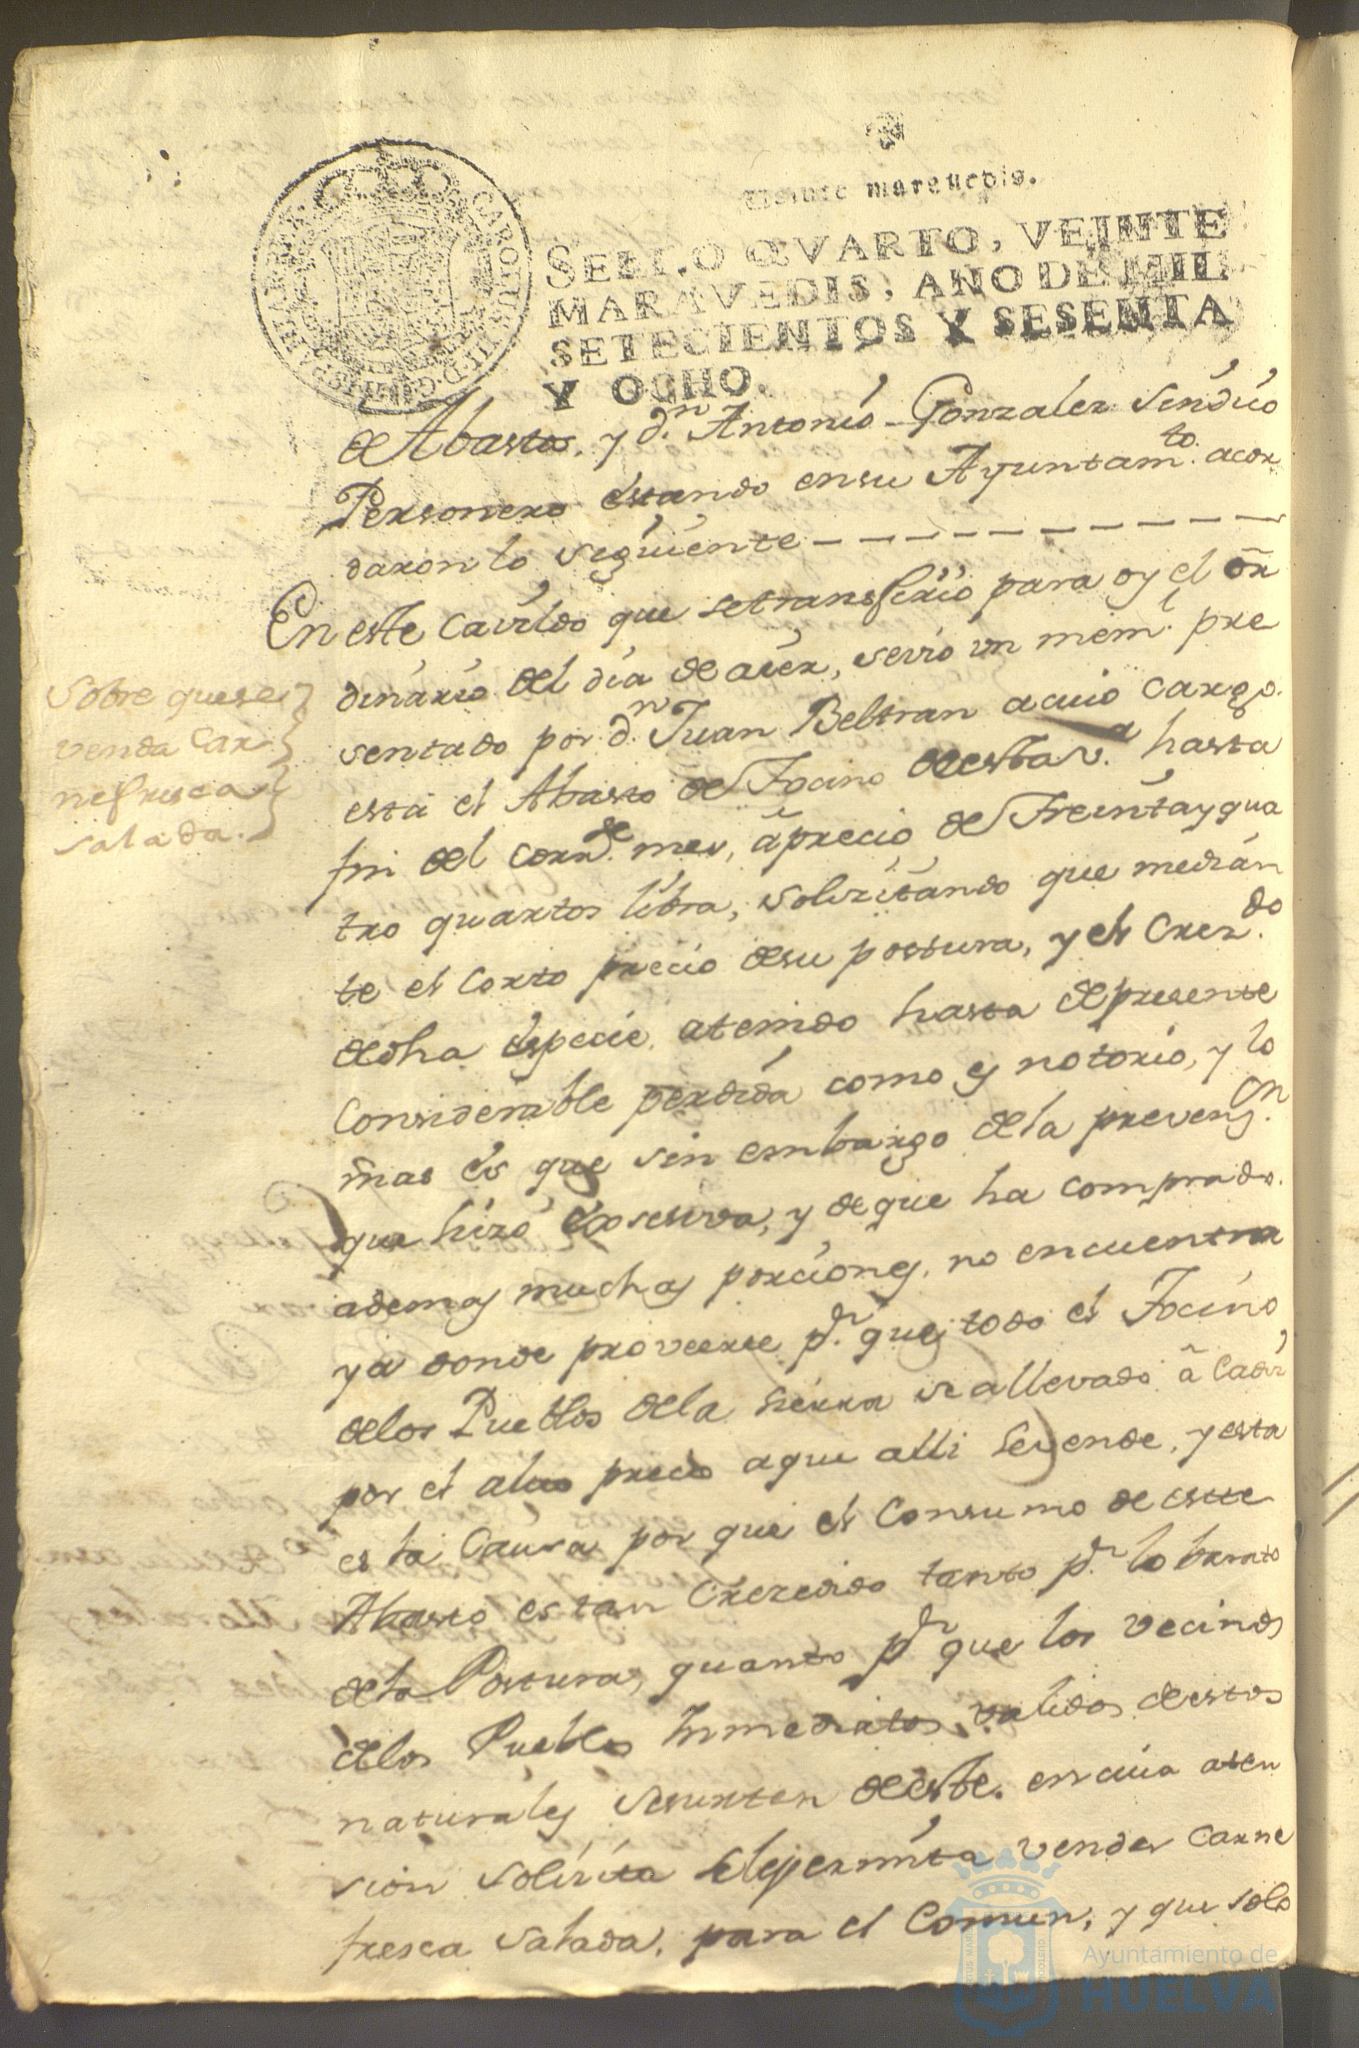 Veinte maravedis.
SELLO QVARTO, VEINTE
MARAVEDIS, AÑO DE MIL
SETECIENTOS Y SESENTA
Y OCHO.
de Abastos, y dn. Antonio Gonzalez Sindico
Personero estando en su Ayuntamto. acor
daron lo siguiente
En este Cavildo que se transfirio para oy el or
dinario del dia de aier, se vio un meml. pre
sentado por dn. Juan Beltran a cuio cargo
esta el Abasto de Tocino de esta va. hasta
fin del corrte. mes, à precio de Treinta y qua
tro quartos libra, solicitando que median
te el corto precio de su postura, y el Crezdo.
de dha especie, a tenido hasta de presente
Considerable perdida como es notorio, y lo
mas es que sin embargo de la prevenson.
que hizo
ademas muchas porciones, no encuentra
ya donde proveerse pr. que todo el Tocino
de los Pueblos de la sierra se a llevado à Cadiz
por el alto precio a que alli se vende, y esta
es la Causa por que el Consumo de este
Abasto es tan Crezedido tanto pr. lo barato
de la Postura, quanto pr. que los vecinos
de los Pueblos Inmediatos validos de estos
naturales se surten de este. en cuia aten
sion solicita se le permita vender carne
fresca salada, para el Comun, y que solo
Sobre que se
venda Car
ne fresca
salada.
CAROLUS III D.G. HISPANIAR. REX
Ayuntamiento de
HUELVA